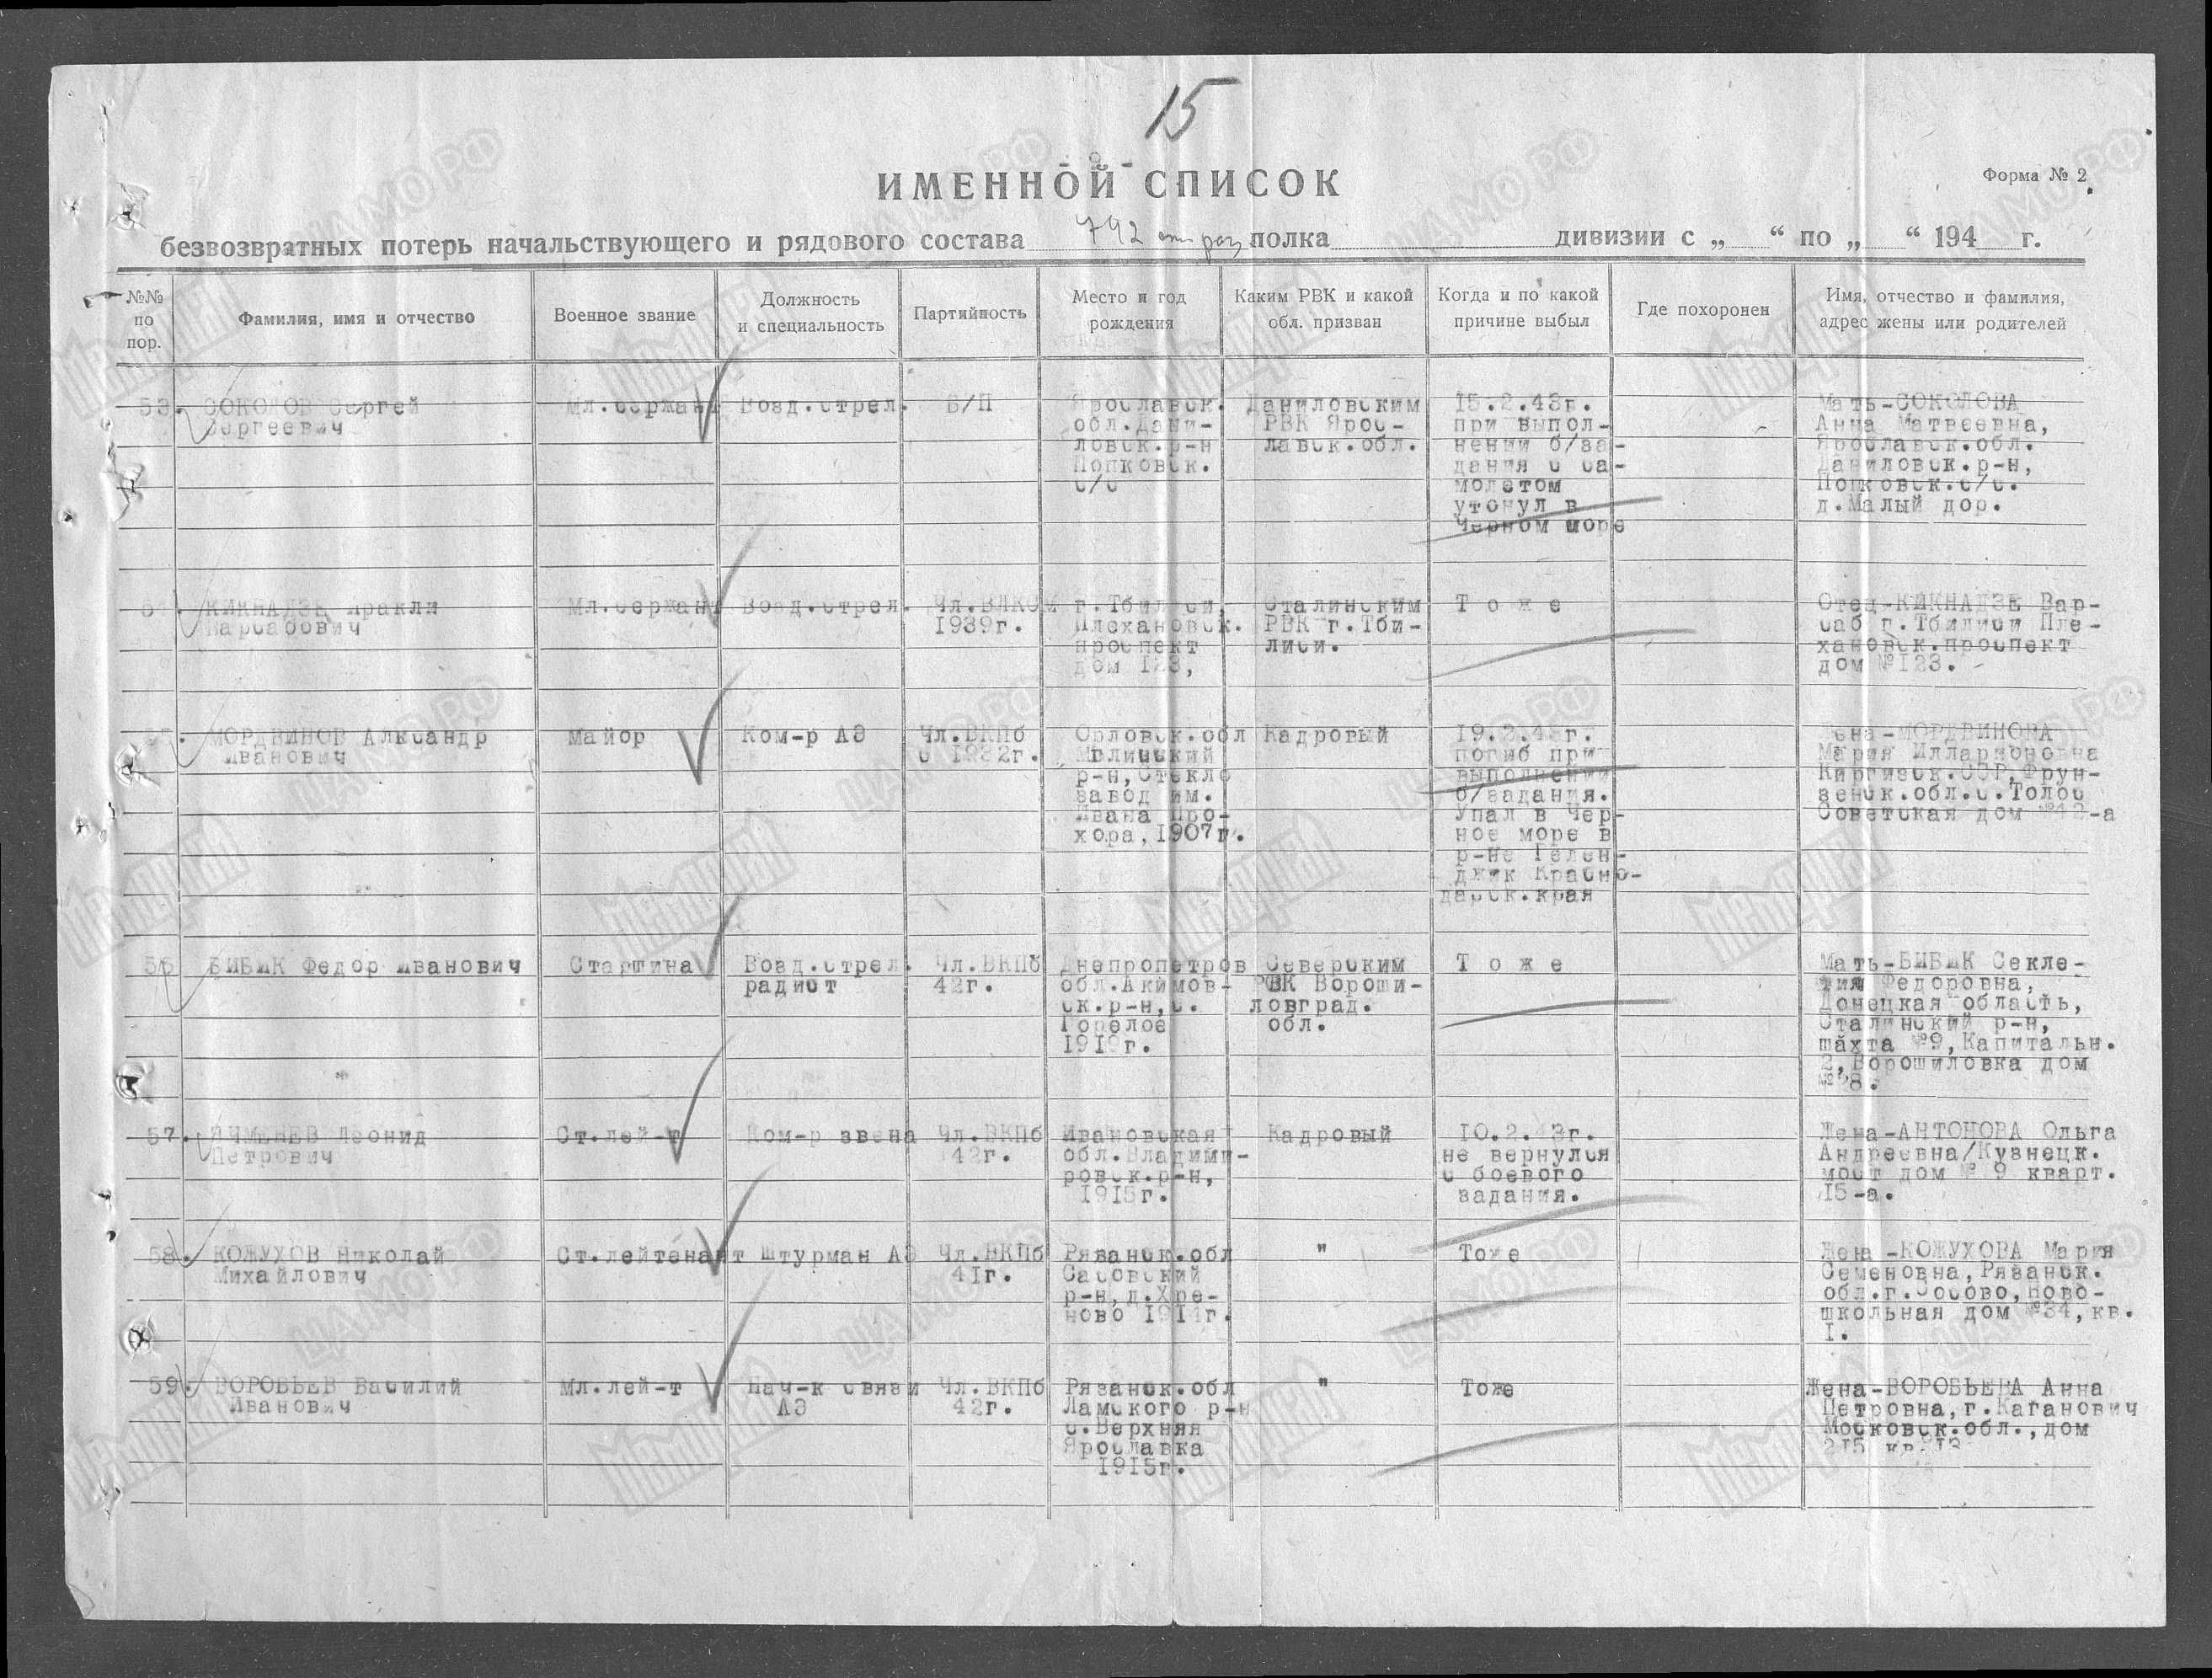 15
- 9 -
ИМЕННОЙ СПИСОК
Форма № 2
безвозвратных потерь начальствующего и рядового состава 792 полка дивизии с „ “ по „ “ 194 г.
№№ по пор.
Фамилия, имя и отчество
Военное звание
Должность и специальность
Партийность
Место и год рождения
Каким РВК и какой обл. призван
Когда и по какой причине выбыл
Где похоронен
Имя, отчество и фамилия, адрес жены или родителей
53. СОКОЛОВ Сергей
Сергеевич
Мл.сержант
Возд.стрел.
Б/П
Ярославск.
обл.Дани-
ловск.р-н
Попковск.
с/с
Даниловским
РВК Ярос-
лавск.обл.
15.2.43г.
при выпол-
нении б/за-
дания с са-
молетом
утонул в
Черном море
Мать-СОКОЛОВА
Анна Матвеевна,
Ярославск.обл.
Даниловск.р-н,
Попковск.с/с.
д.Малый дор.
КИКНАДЗЕ Иракли
Варсабович
Мл.сержант
Возд.стрел.
Чл.ВЛКСМ
1939г.
г.Тбилиси,
Плехановск.
проспект
дом 123,
Сталинским
РВК г.Тби-
лиси.
Т о ж е
Отец-КИКНАДЗЕ Вар-
саб г.Тбилиси Пле-
хановск.проспект
дом №123.
МОРДВИНОВ Александр
Иванович
Майор
Ком-р АЭ
Чл.ВКПб
с 1932г.
Орловск.обл
Мглинский
р-н,Стекло
завод им.
Ивана Про-
хора,1907г.
Кадровый
19.2.43г.
погиб при
выполнении
б/задания.
Упал в Чер-
ное море в
р-не Гелен-
джик Красно-
дарск.края
Жена-МОРДВИНОВА
Мария Илларионовна
Киргизск.ССР,Фрун-
зенск.обл.с.Толос
Советская дом -а
56 БИБИК Федор Иванович
Старшина
Возд.стрел.
радист
Чл.ВКПб
42г.
Днепропетров
обл.Акимов-
ск.р-н,с.
Горелое
1919г.
Северским
РВК Вороши-
ловград.
обл.
Т о ж е
Мать-БИБИК Секле-
тия Федоровна,
Донецкая область,
Сталинский р-н,
шахта №9,Капитальн.
2,Ворошиловка дом
57. ЯЧМЕНЕВ Леонид
Петрович
Ст.лей-т
Ком-р звена
Чл.ВКПб
42г.
Ивановская
обл.Владими-
ровск.р-н,
1915г.
Кадровый
10.2.43г.
не вернулся
с боевого
задания.
Жена-АНТОНОВА Ольга
Андреевна/Кузнецк.
мост дом № 9 кварт.
15-а.
58. КОЖУХОВ Николай
Михайлович
Ст.лейтенант
Штурман АЭ
Чл.ВКПб
41г.
Рязанск.обл
Сасовский
р-н,д.Хре-
ново 1914г.
"
Тоже
Жена -КОЖУХОВА Мария
Семеновна,Рязанск.
обл.г.Сосово,Ново-
школьная дом №34,кв.
1.
59. ВОРОБЬЕВ Василий
Иванович
Мл.лей-т
Нач-к связи
АЭ
Чл.ВКПб
42г.
Рязанск.обл
Ламского р-н
с.Верхняя
Ярославка
1915г.
"
Тоже
Жена-ВОРОБЬЕВА Анна
Петровна,г.Каганович
Московск.обл.,дом
215 кв.13